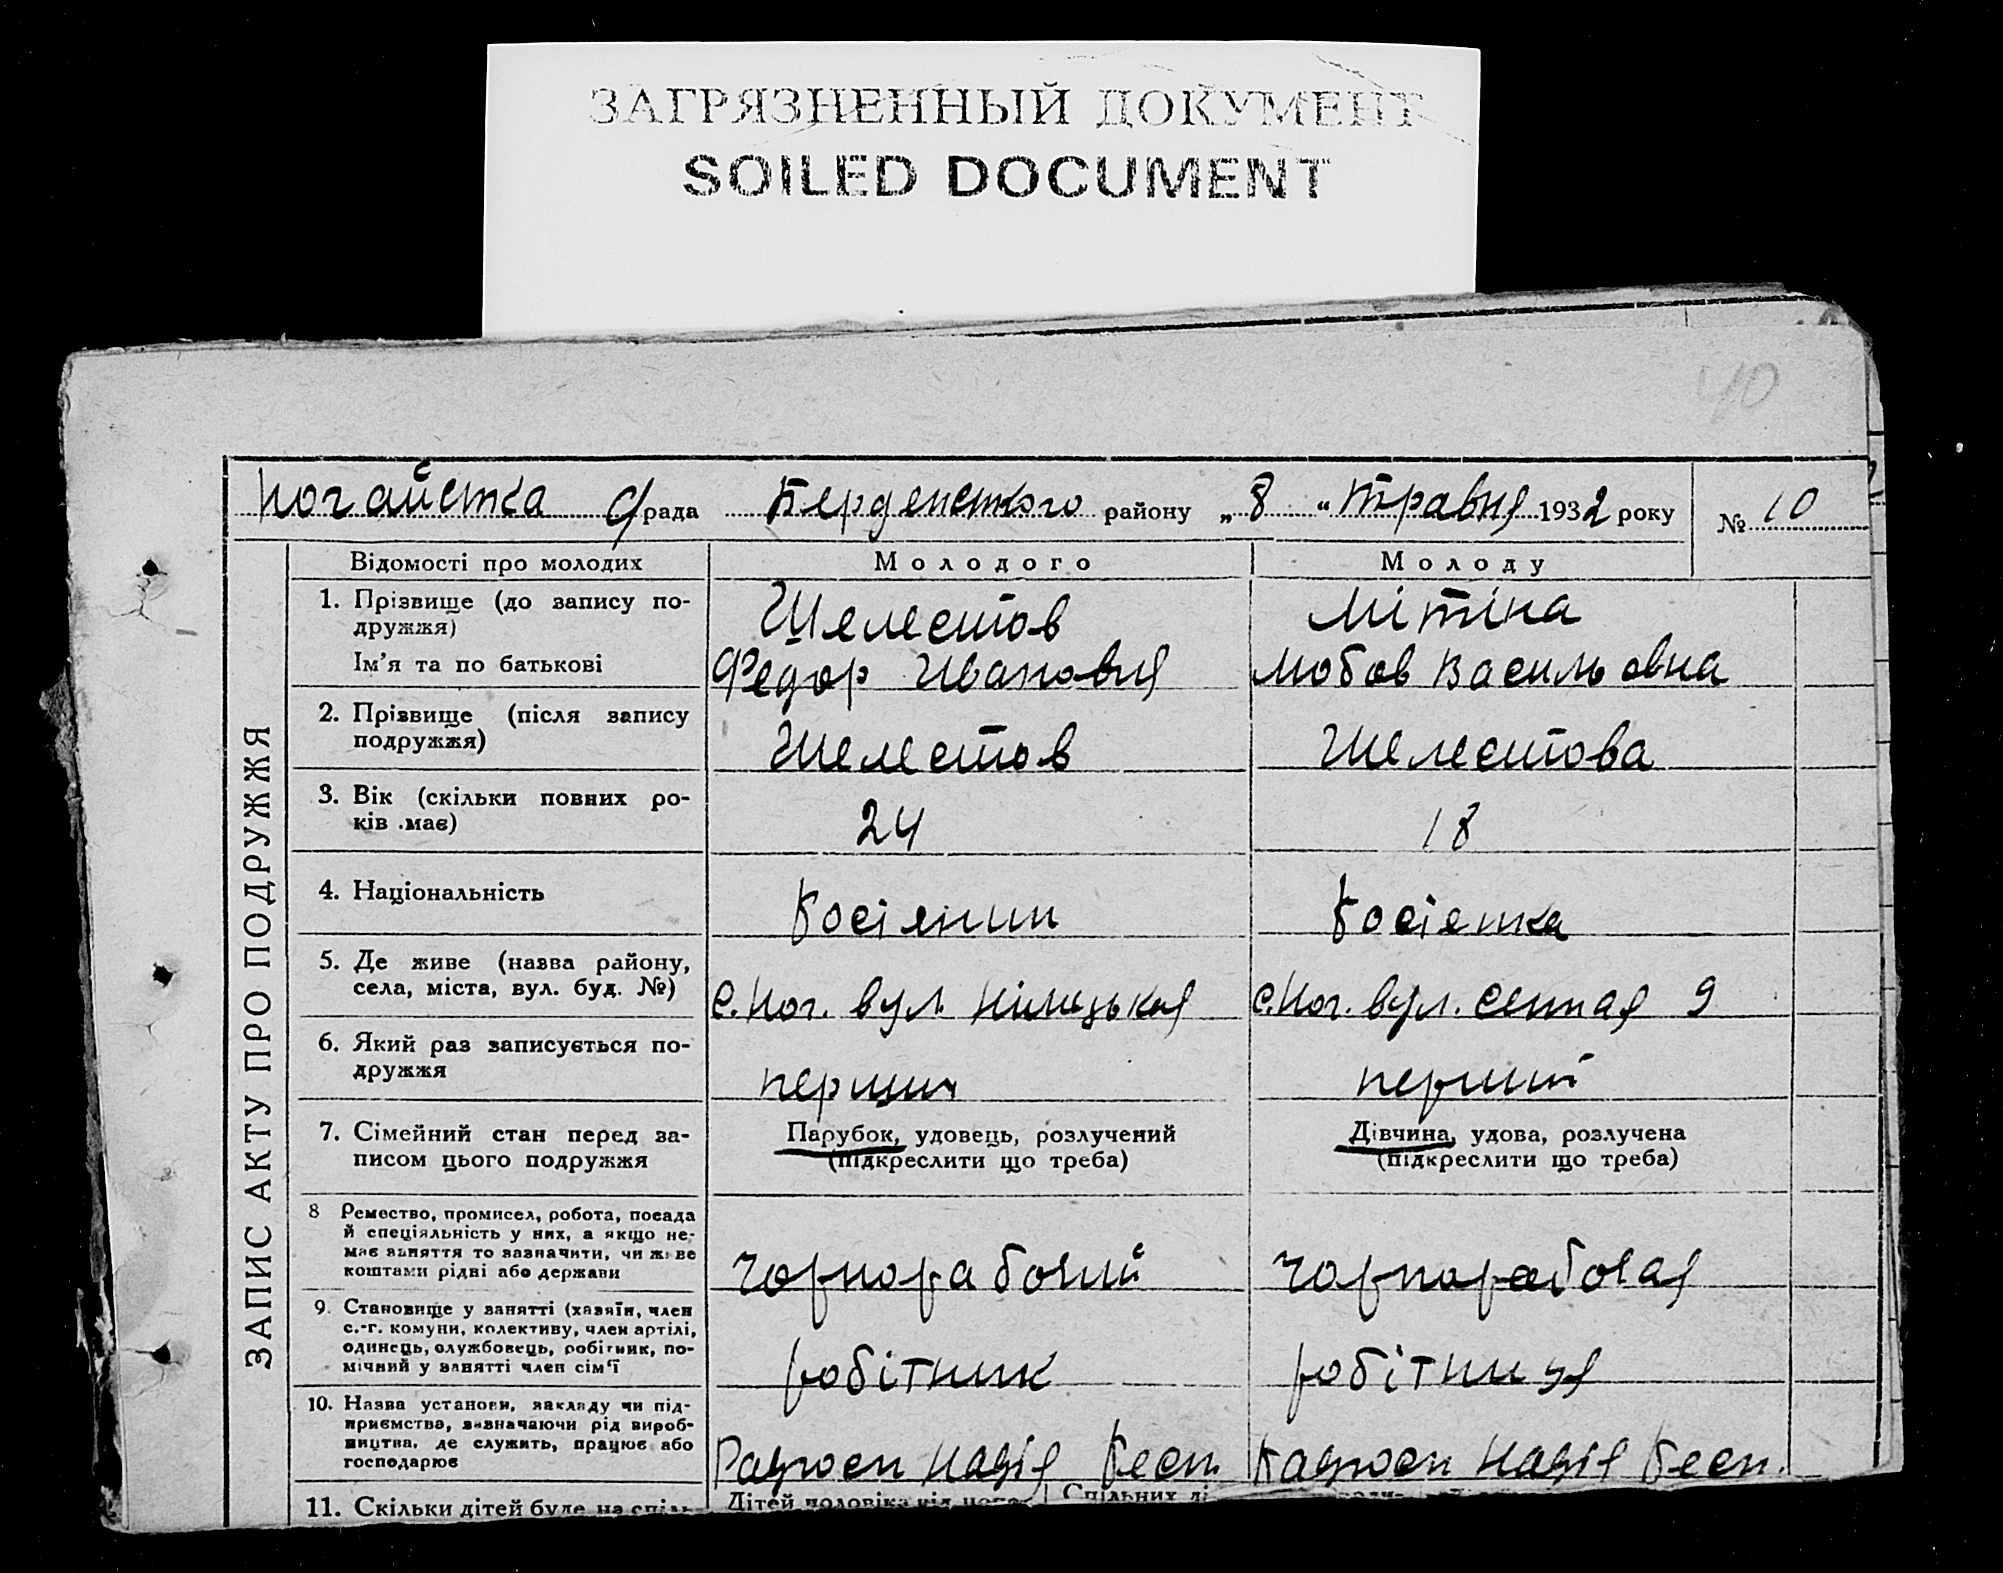 ЗАГРЯЗНЕННЫЙ ДОКУМЕНТ
SOILED DOCUMENT
40
Ногайська С/рада Бердянського району „ 8 “ Травня 1932 року № 10
ЗАПИС АКТУ ПРО ПОДРУЖЖЯ
Відомості про молодих Молодого Молоду
1. Прізвище (до запису по-
дружжя) Шелестов Мітіна
Ім'я та по батькові Федор Іванович Любов Васильовна
2. Прізвище (після запису
подружжя) Шелестов Шелестова
3. Вік (скільки повних ро-
ків має) 24 18
4. Національність Росіянин Росіянка
5. Де живе (назва району,
села, міста, вул. буд. №) с. Ног. вул. Німецька с. Ног. вул. 9
6. Який раз записується по-
дружжя перший перший
7. Сімейний стан перед за-
писом цього подружжя
Парубок, удовець, розлучений
(підкреслити що треба)
Дівчина, удова, розлучена
(підкреслити що треба)
8 Ремество, промисел, робота, посада
й спеціяльність у них, а якщо не-
має заняття то зазначити, чи живе
коштами рідні або держави
чорнорабочий чорнорабочая
9. Становище у занятті (хазяїн, член
с.-г. комуни, колективу, член артілі,
одинець, службовець, робітник, по-
мічний у занятті член сім'ї
робітник робітниця
10. Назва установи, закладу чи під-
приємства, зазначаючи рід вироб-
ництва, де служить, працює або
господарює
11. Скільки дітей буде на спіль-